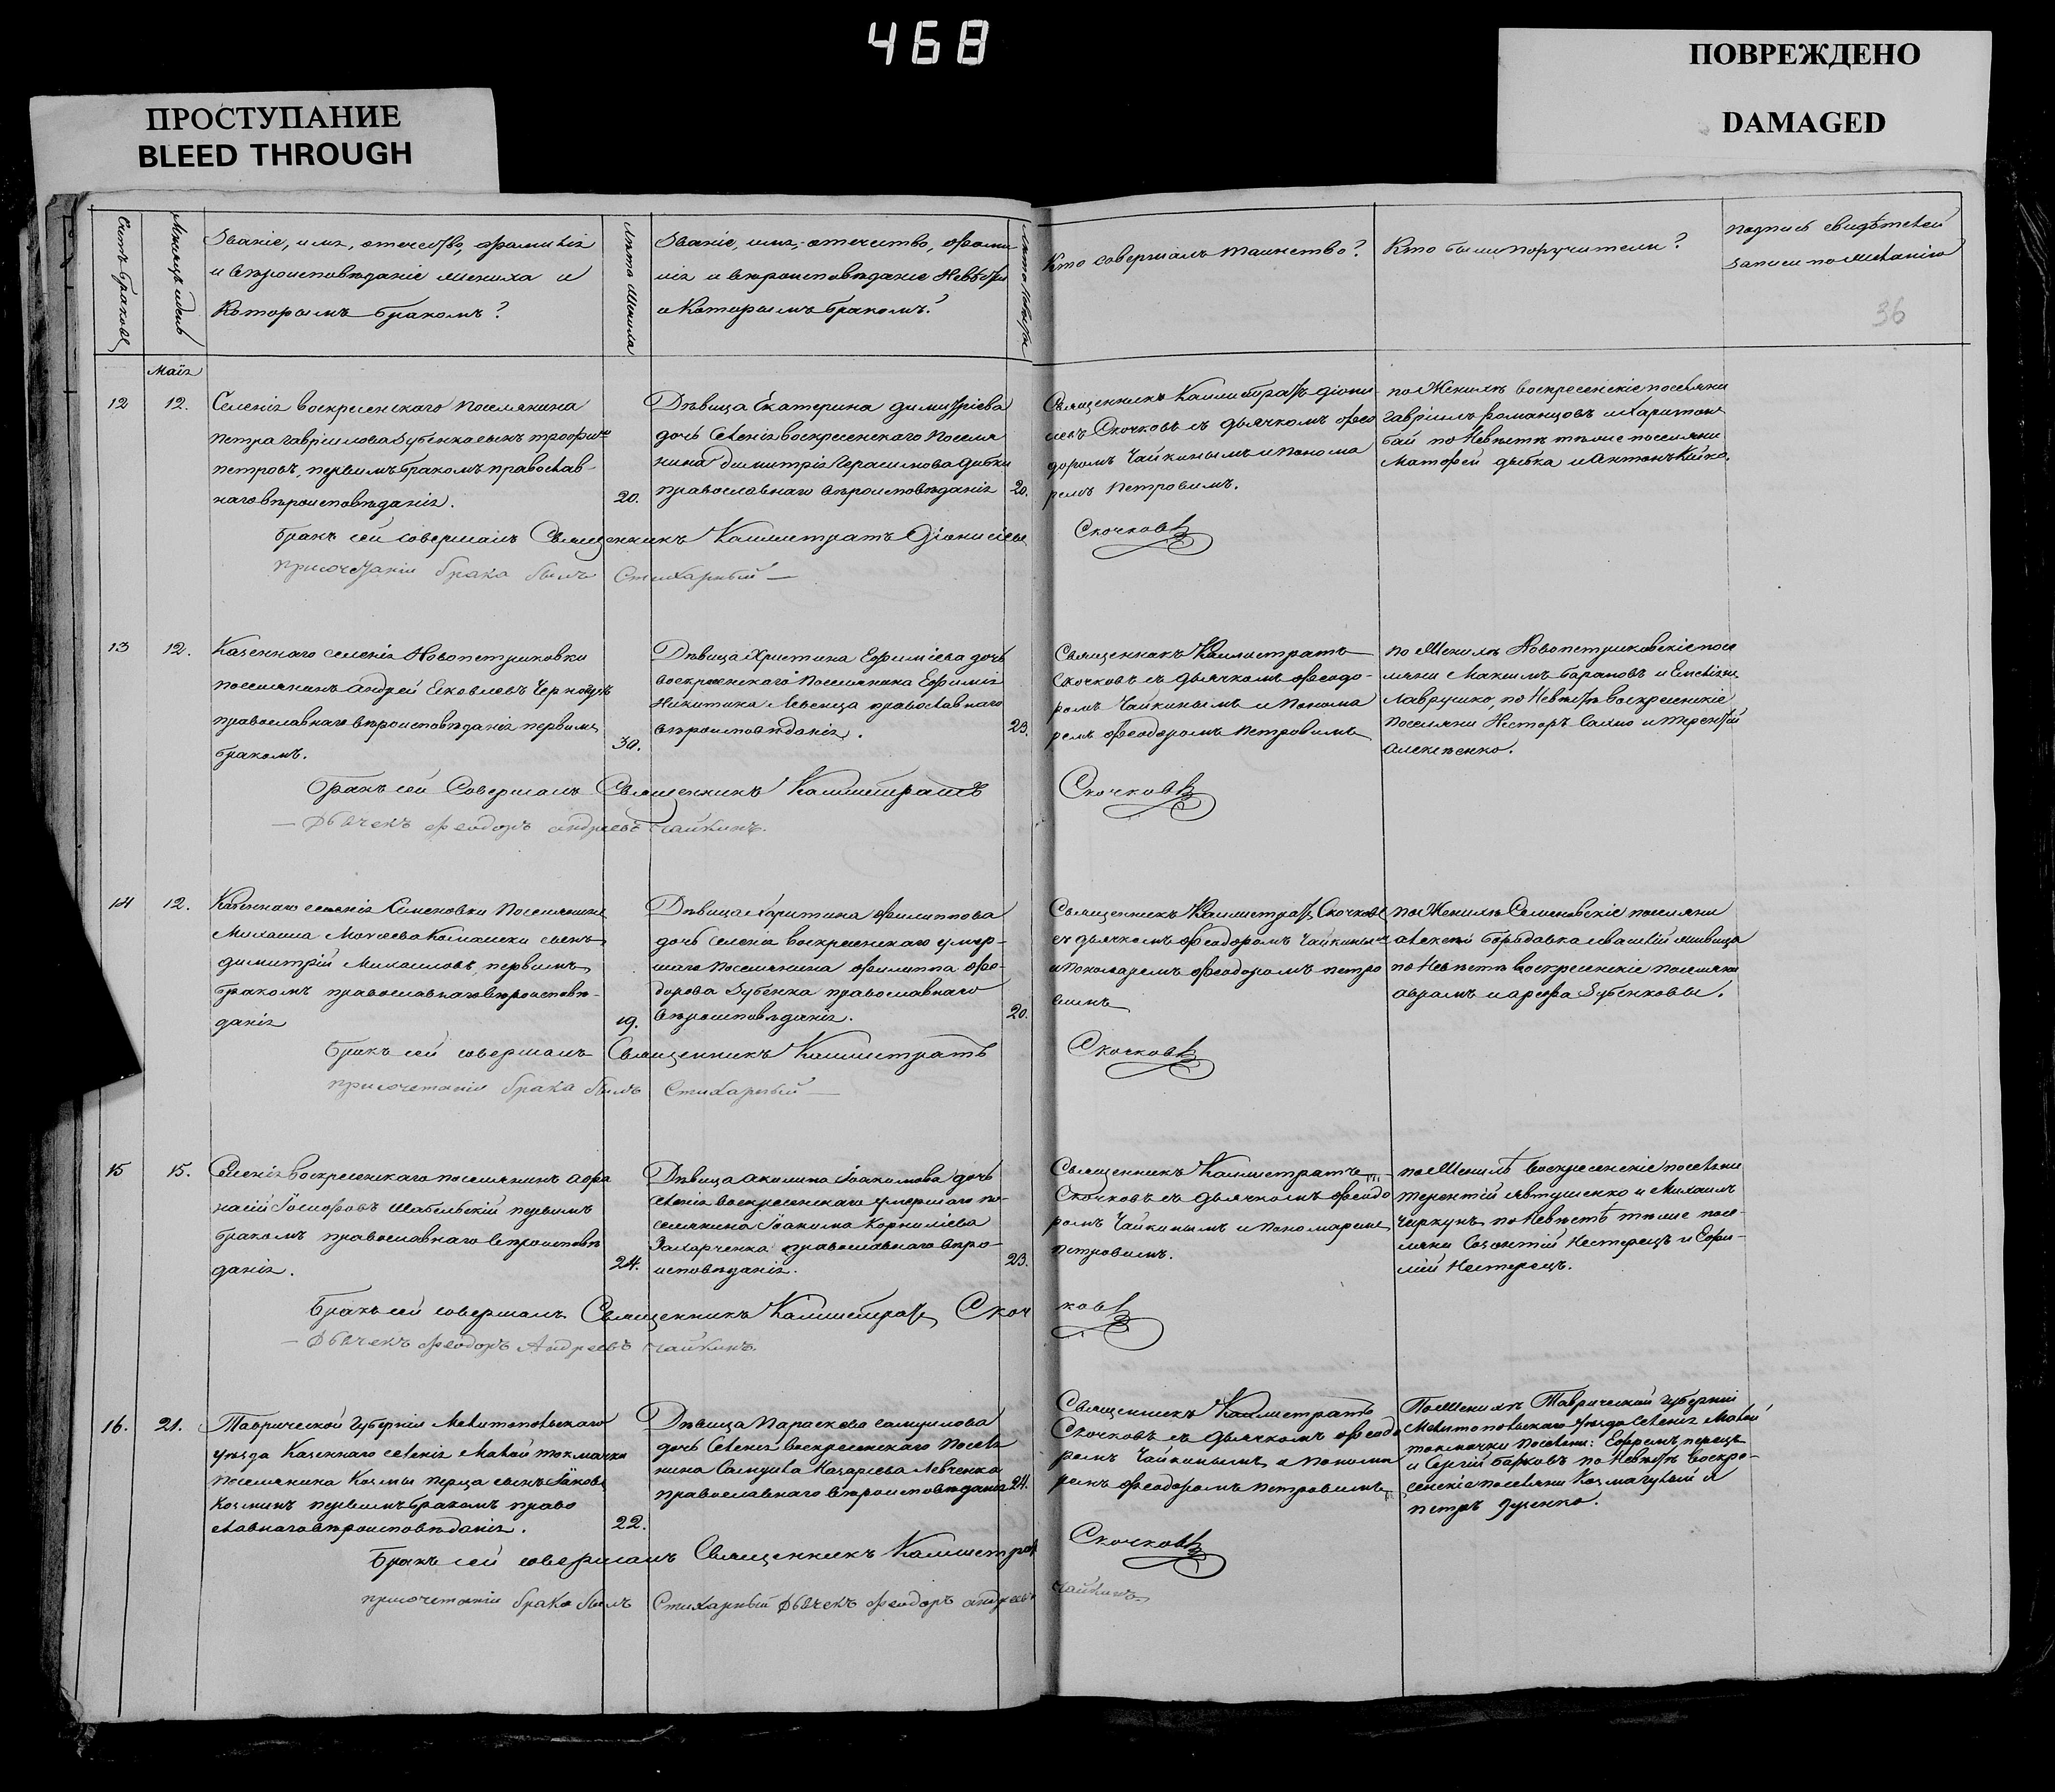 468
ПРОСТУПАНИЕ
BLEED THROUGH
ПОВРЕЖДЕНО
DAMAGED
Счетъ браковъ
Мѣсяцъ и день
Званіе, имя, отечество, фамилія
и вѣроисповѣданіе жениха и
которымъ бракомъ?
Лѣта жениха
Званіе, имя, отечество, фами
лія и вѣроисповѣданіе невѣсты
и которымъ бракомъ?
Лѣта невѣсты
Кто совершалъ таинство?
Кто были поручители?
подпись свидѣтелей
записи по желанію
36
Маія
12
12.
Селенія воскресенскаго поселянина
Петра Гавріилова Зубенка сынъ трофимъ
петровъ, первымъ бракомъ православ-
наго вѣроисповѣданія.
20.
Дѣвица Екатерина димитріева
дочь селенія воскресенскаго поселя
нина димитрія Герасимова Дибки
православнаго вѣроисповѣданія
20.
Священникъ Каллистратъ діони
сіевъ Скочковъ съ дьячкомъ фео
доромъ Чайкинымъ и понома
ремъ Петровымъ.
по Женихѣ воскресенскіе поселяни
гавріилъ романцовъ и харитонъ
бай по Невѣстѣ тѣже поселяни
Матфей дыбка и Антонъ Кійко.
Бракъ сей совершалъ Священникъ Каллистратъ Діонисіевъ
Скочковъ
при сочетаніи брака былъ Стихарный —
13
12.
Казеннаго селенія Новопетриковки
поселянинъ андрей Яковлевъ
православнаго вѣроисповѣданія первымъ
бракомъ.
30.
Дѣвица Христина Ефиміева дочь
воскресенскаго Поселянина Ефимія
Никитина Левенца православнаго
вѣроисповѣданія.
23.
Священникъ Каллистратъ
Скочковъ съ дьячкомъ феодо-
ромъ Чайкинымъ и понома
ремъ феодоромъ Петровымъ
по Женихѣ Новопетриковскіе посе
ляни Максимъ Барановъ и
Лаврушко, по Невѣстѣ воскресенскіе
поселяни Несторъ Сахно и терентій
алексѣенко.
Бракъ сей Совершалъ Священникъ Каллистратъ
Скочковъ
— Дьячекъ феодоръ андреевъ Чайкинъ.
14
12.
Казеннаго селенія Семеновки Поселянина
Михаила Моисеева сынъ
димитрій Михаиловъ, первымъ
бракомъ православнаго вѣроисповѣ-
данія
19.
Дѣвица Харитина филиппова
дочь селенія воскресенскаго умер-
шаго поселянина филиппа фео-
дорова Зубенка православнаго
вѣроисповѣданія.
20.
Священникъ Каллистратъ Скочковъ
съ дьячкомъ феодоромъ Чайкинымъ
и пономаремъ феодоромъ петро
вымъ
по Женихѣ Семеновскіе поселяни
алексѣй бородавка
по Невѣстѣ воскресенскіе поселяни
аврамъ и арефа Зубенковы.
Бракъ сей совершалъ Священникъ Каллистратъ
Скочковъ
при сочетаніи брака былъ Стихарный —
15
15.
Селенія воскресенскаго поселянинъ афа
насій Іосифовъ Шабельскій первымъ
бракомъ православнаго вѣроисповѣ
данія.
24.
Дѣвица акилина Іоакимова дочь
селенія воскресенскаго умершаго по-
селянина Іоакима Корниліева
Захарченка православнаго вѣро-
исповѣданія.
23.
Священникъ Каллистратъ
Скочковъ съ дьячкомъ феодо
ромъ Чайкинымъ и пономаремъ
петровымъ.
по Женихѣ воскресенскіе поселяни
терентій Явтушенко и Михаилъ
чиркунъ по Невѣстѣ тѣже посе-
ляни Созонтій Нестерецъ и Ефи-
мій Нестерецъ.
Бракъ сей совершалъ Священникъ Каллистратъ Скоч
ковъ
— Дьячекъ феодоръ Андреевъ Чайкинъ.
16.
21.
Таврической губерніи Мелитопольскаго
уѣзда Казеннаго селенія Малой токмачки
поселянина Козмы перца сынъ Іаковъ
Козминъ первымъ бракомъ право
славнаго вѣроисповѣданія.
22.
Дѣвица Параскева самуилова
дочь селенія воскресенскаго поселя
нина Самуила Назаріева Левченка
православнаго вѣроисповѣданія
24.
Священникъ Каллистратъ
Скочковъ съ дьячкомъ феодо
ромъ Чайкинымъ и понома
ремъ феодоромъ петровымъ
По Женихѣ Таврической губерніи
Мелитопольскаго уѣзда селенія Малой
токмачки поселяни: Ефремъ перецъ
и Сергій Барковъ по Невѣстѣ воскре-
сенскіе поселяни Козма гуцый и
петръ Яценко.
Бракъ сей совершалъ Священникъ Каллистратъ
Скочковъ
при сочетаніи брака былъ Стихарный Дьячекъ феодоръ андреевъ
Чайкинъ